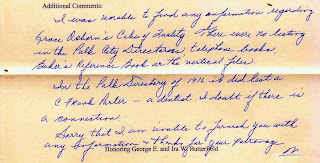 Additional Comments:
I was unable to find any information regarding
Grace Osborn's Cakes of Quality. There were no listing
in the Polk City Directories, telephone books
Baker's Reference Book or the vertical files.
In the Polk Directory of 1916 it did list a
C Frank Parter - a dentist. I doubt if there is
a connection.
Sorry that I am unable to furnish you with
any information & Thanks for your Patronage
Honoring George E. and Ira W. Butterfield